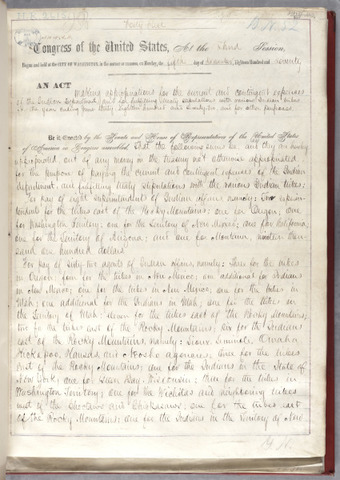 Forty-first
Congress of the United States, At the Third Session,
Begun and held at the CITY OF WASHINGTON, in the District of Columbia on Monday, the fifth day of December eighteen hundred and seventy
AN ACT
making appropriations for the current and contingent expenses
of the Indian Department, and for fulfilling treaty stipulations with various Indian tribes
for the year ending June thirty eighteen hundred and seventy-two and for other purposes
Be it Enacted by the Senate and House of Representatives of the United States
of America in Congress assembled That the following sums be and they are hereby
appropriated out of any money in the treasury not otherwise appropriated
for the purpose of paying the current and contingent expenses of the Indian
department, and fulfilling treaty stipulations with the various Indian tribes:
For pay of eight superintendents of Indian affairs namely: Two superin-
tendents for the tribes east of the Rocky Mountains; one in Oregon; one
for Washington Territory; one for the Territory of New Mexico; one for California,
one for the Territory of Arizona; and one for Montana thou-
sand hundred dollars
For pay of sixty two agents of Indian affairs, namely: Three for the tribes
in Oregon four for the tribes in New Mexico; one additional for Indians
in New Mexico; one for the tribes in New Mexico, one for the tribes in
Utah; one additional for the Indians in Utah; one for the tribes in
the Territory of Utah; for the tribes east of the Rocky Mountains,
two for the tribes east of the Rocky Mountains; six for the Indians
east of the Rocky Mountains, namely: Sioux, Seminole, Omaha,
Kickapoo, Kansas and Neosho agencies; three for the tribes
east of the Rocky Mountains; one for the Indians in the State of
New York; one for Green Bay, Wisconsin; three for the tribes in
Washington Territory; one for the Wichitas and neighboring tribes
west of the Choctaws and Chickasaws; one for the tribes east
of the Rocky Mountains; one for the Indians in the Territory of New